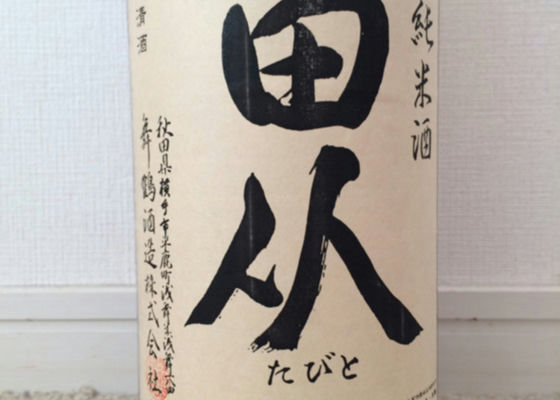 純米酒
田从
たびと
清酒
秋田県横手市平鹿町浅舞字浅舞184
舞鶴酒造株式会社